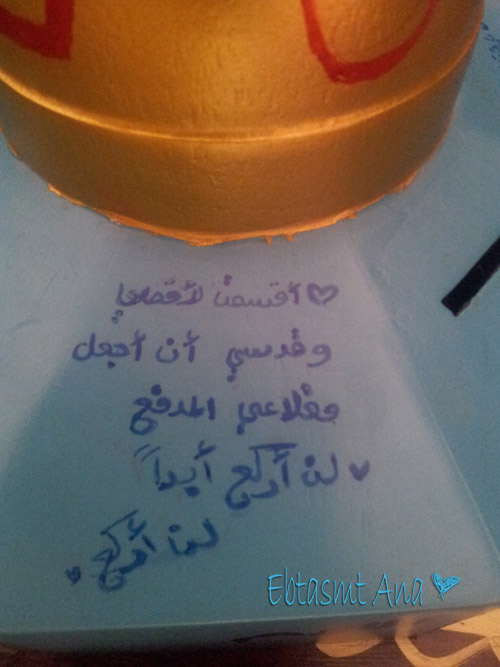 أقسمت لأقصاي
وقدسي أن أجعل
مقلاعي المدفع
لن أركع أبداً
لن أركع
Ebtasmt Ana